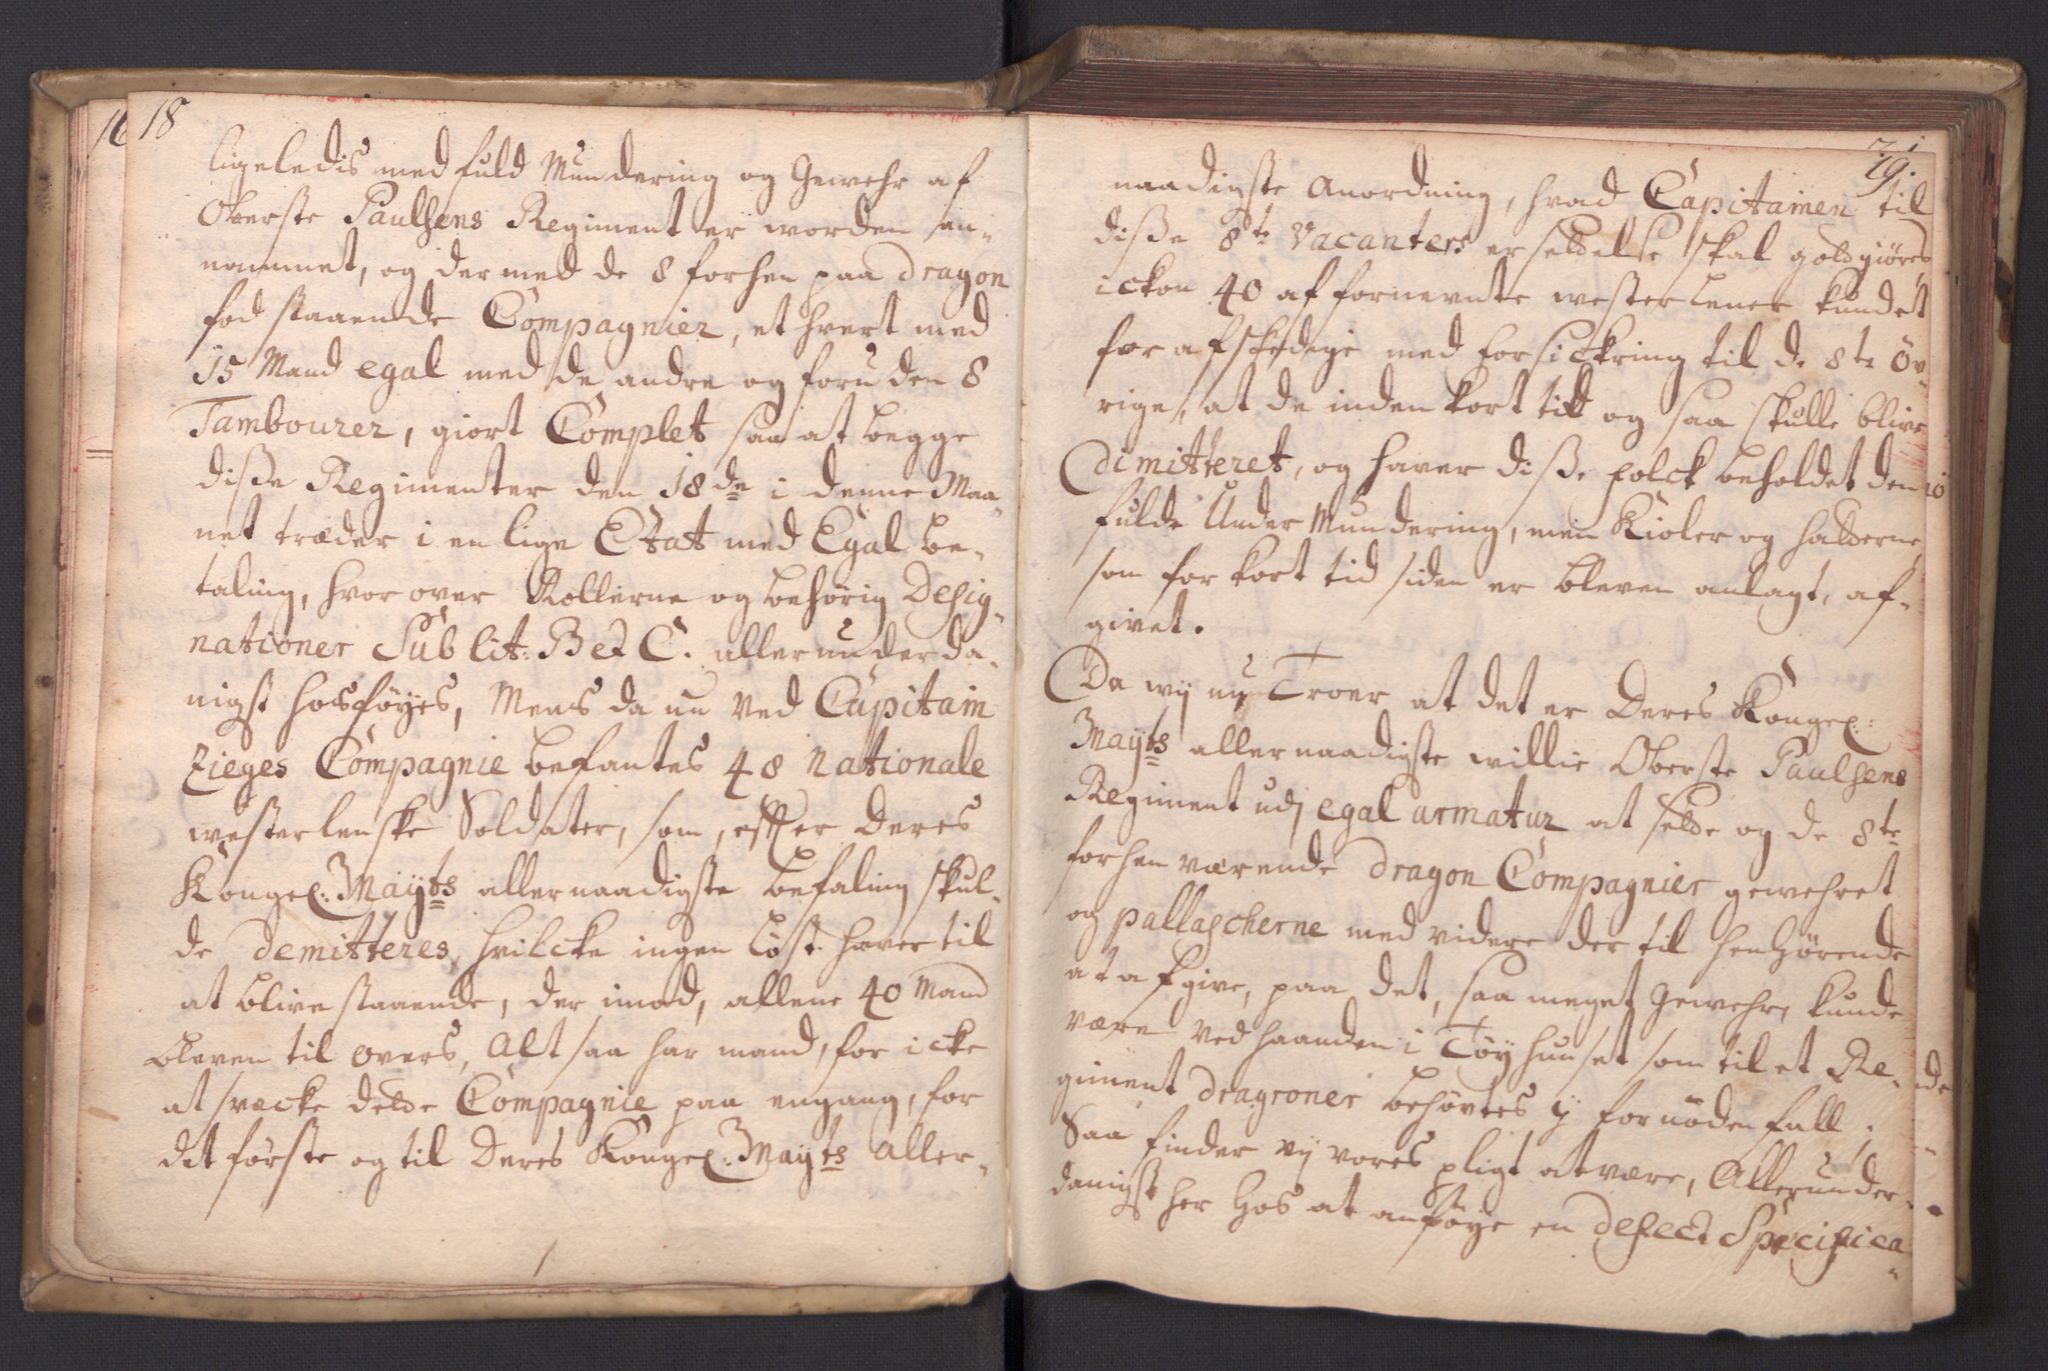 18
ligeledis med fuld Mundering og Gewehr af
Oberste Paulsens Regiment er worden an-
nommet, og der med de 8 forhen paa dragon
fod staaende Compagnier, et hvert med
15 Mand egal med de andre og foruden 8
Tambourer, giort Complet saa at begge
disse Regimenter den 18de i denne Maa-
net træder i en lige Etat med Egal be-
taling, hvor over Rollerne og behörig Desig-
nationer Sub lit: B et C. allerunderda-
nigst hosföyes, Mens da nu ved Capitain
Zieges Compagnie befantes 48 Nationale
westerlenske Soldater, som, effter Deres
Kongel: Mayts allernaadigste befaling skul-
de demitteres, hvilcke ingen löst haver til
at blive staaende, der imod, allene 40 Mand
bleven til overs, Alt saa har mand, for icke
at svæcke delde Compagnie paa engang, for
det förste og til Deres Kongel: Mayts Aller-
19.
naadigste Anordning, hvad Capitainen til
disse 8te Vacanters erseldelse skal godgiöres,
ickon 40 af fornevnte westerlener kundet
for afskedige med forsickring til de 8te öv-
rige, at de inden kort tid og saa skulle blive
dimitteret, og haver disse folck beholdet den
fulde Under Mundering, men Kioler og hatterne,
som for kort tid siden er bleven anlagt, af-
givet.
Da wy nu Troer at det er Deres Kongel:
Mayts allernaadigste willie Oberste Paulsens
Regiment udj egal armatur at selde og de 8te
forhen værende dragon Compagnier gewehret
og pallascherne med videre der til henhörende
at afgive, paa det, saa meget Gewehr, kunde
være ved haanden i Töyhuuset som til et Re-
giment dragroner behövtes y fornödenfall;
Saa finder vy vores pligt at være, Allerunder-
danigst her hos at anföye en defect Specifica-